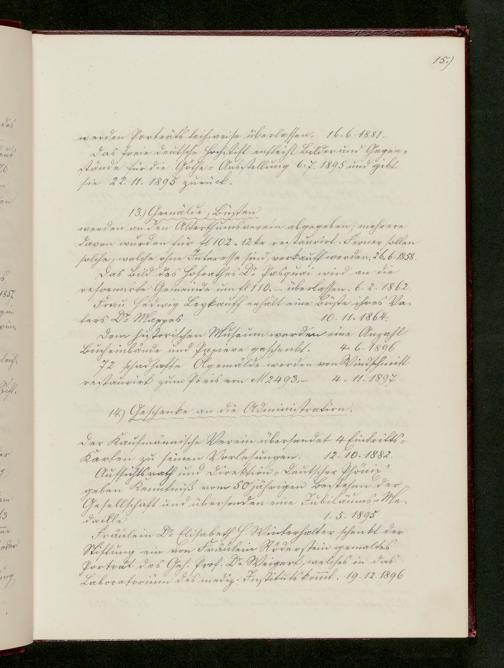 15.)
werden Porträts leihweise überlassen. 16.6.1881.
Das freie deutsche Hochstift entleiht Bilder und Gegen-
stände für die Göthe-Ausstellung 6.7.1895 und gibt
sie 22.11.1895 zurück.
13.) Gemälde, Büsten
werden an den Alterthumsverein abgegeben, mehrere
davon wurden für fl 102.12 kr restaurirt. Ferner sollen
solche, welche ohne Interesse sind, verkauft werden. 26.6.1858.
Das Bild des Hofrathes Dr. Pasquai wird an die
reformirte Gemeinde um fl 110.- überlassen. 6.2.1862.
Frau Hedwig erhält eine Büste ihres Va-
ters Dr. Mappes 10.11.1864.
Dem historischen Museum werden eine Anzahl
Büchereinbände und Papiere geschenkt. 4.6.1896
72 schadhafte Ölgemälde werden von Windschmitt
restaurirt zum Preis von M. 2493.- 4.11.1897
14.) Geschenke an die Administration.
Der Kaufmännische Verein übersendet 4 Eintritts-
Karten zu seinen Vorlesungen. 12.10.1882.
Aufsichtsrath und Direktion "Deutscher Phönix"
geben Kenntniß vom 50 jährigen Bestehen der
Gesellschaft und übersenden eine Jubiläums-Me-
daille 1.5.1895
Fräulein Dr. Elisabeth H. Winterhalter schenkt der
Stiftung ein von Fräulein Röderstein gemaltes
Portrait des Geh. Prof. Dr. Weigert, welches in das
Laboratorium des mediz. Instituts kommt. 19.12.1896